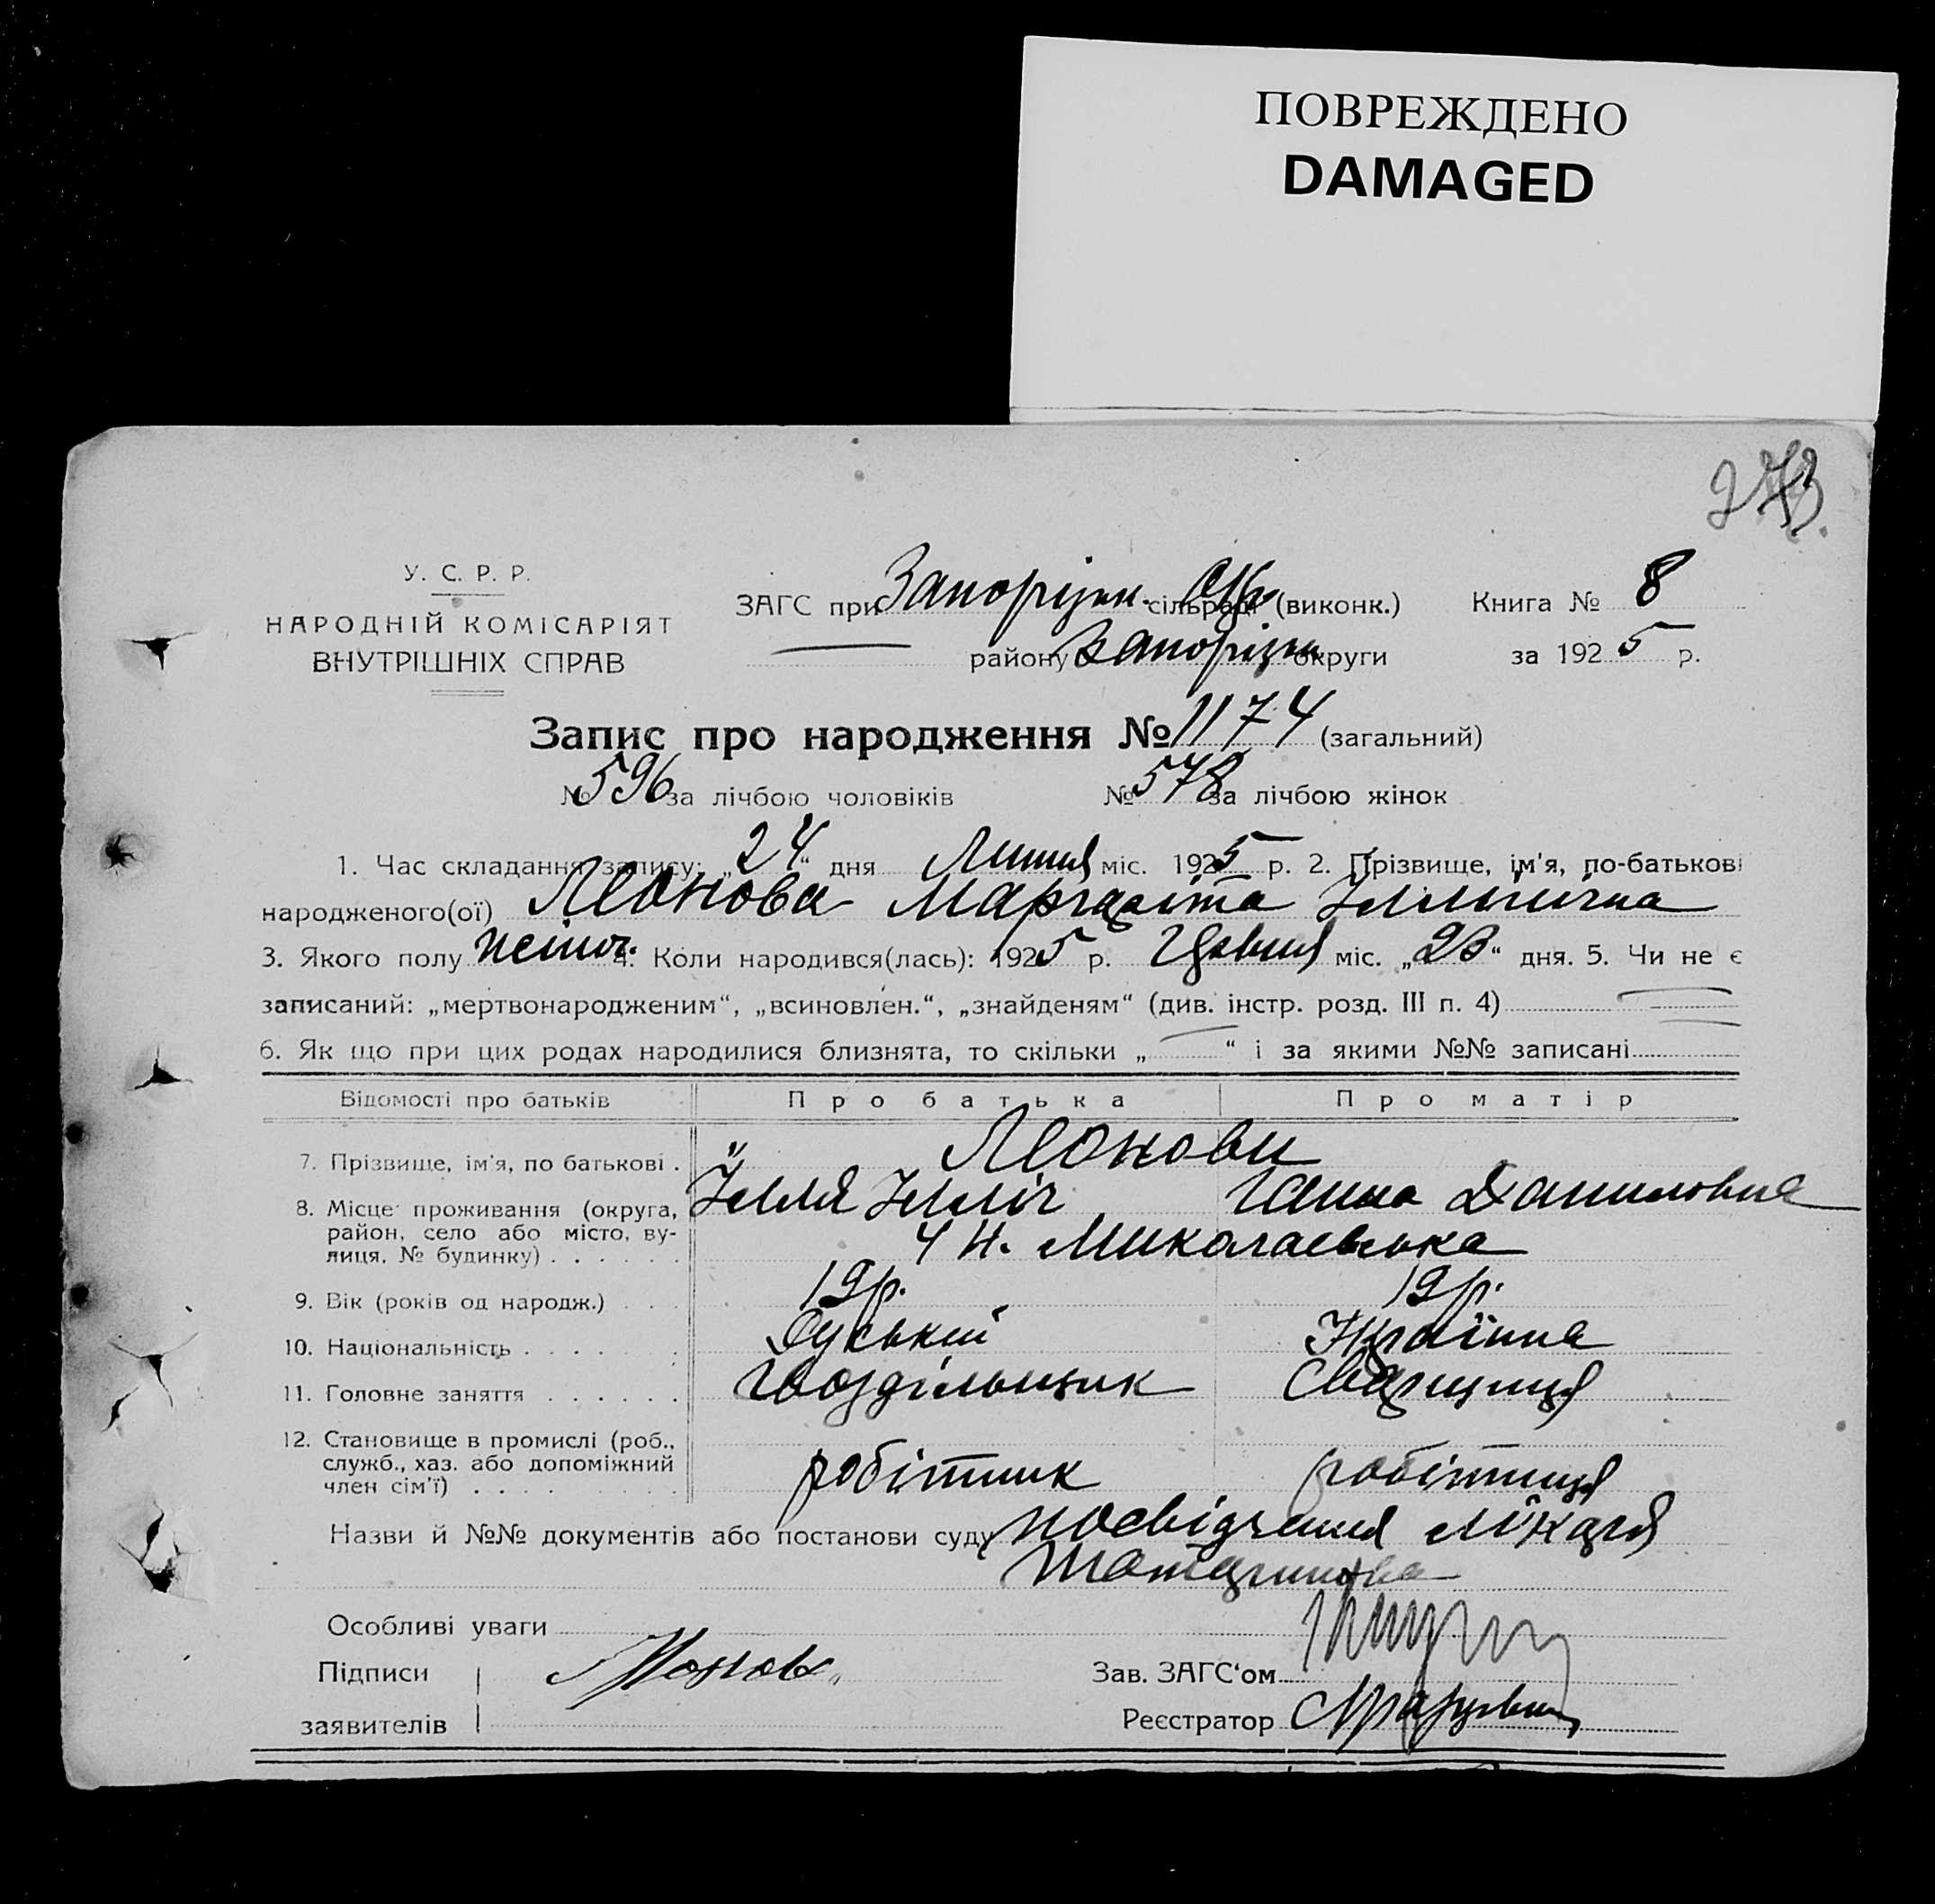 ПОВРЕЖДЕНО
DAMAGED
273.
У. С. Р. Р.
НАРОДНІЙ КОМІСАРІЯТ
ВНУТРІШНІХ СПРАВ
ЗАГС при Запорізьк. сільраді (виконк.) Книга № 8
району Запорізьк округи за 1925 р.
Запис про народження № 1174 (загальний)
№ 596 за лічбою чоловіків № 578 за лічбою жінок
1. Час складання запису: „24“ дня Липня міс. 1925 р. 2. Прізвище, ім'я, по-батькові
народженого(ої) Леонова Маргаріта Іллінічна
3. Якого полу жіноч. 4. Коли народився(лась): 1925 р. міс. „23“ дня. 5. Чи не є
записаний: „мертвонародженим“, „всиновлен.“, „знайденям“ (див. інстр. розд. III п. 4)
6. Як що при цих родах народилися близнята, то скільки „ “ і за якими №№ записані
Відомості про батьків Про батька Про матір
7. Прізвище, ім'я, по батькові . Леонови
8. Місце проживання (округа, Ілля Ілліч Ганна Даниловна
район, село або місто, ву-
лиця, № будинку) . . . . . . 4 Н. Миколаевська
9. Вік (років од народж.) . . . 19 р. 19 р.
10. Національність . . . . . . . Руський Українка
11. Головне заняття . . . . . . Гвоздільщик
12. Становище в промислі (роб.,
служб., хаз. або допоміжний
член сім'ї) . . . . робітник робітниця
Назви й №№ документів або постанови суду посвідчення лікаря
Особливі уваги
Підписи Леонов Зав. ЗАГС‘ом
заявителів Реєстратор